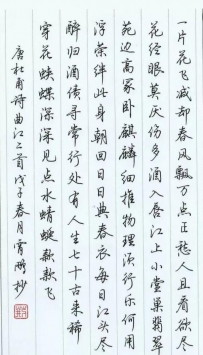 一片花飞减却春风飘万点正愁人且看欲尽
花经眼莫厌伤多酒入唇江上小堂巢翡翠
苑边高冢卧麒麟细推物理须行乐何用
浮荣绊此身朝回日日典春衣每日江头尽
醉归酒债寻常行处有人生七十古来稀
穿花蛱蝶深深见点水蜻蜓款款飞
唐杜甫诗曲江二首戊子春月霄鹏抄